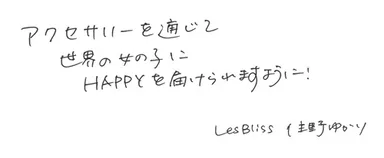 アクセサリーを通じて
世界の女の子に
HAPPYを届けられますように!
LesBliss 佳野ゆかり